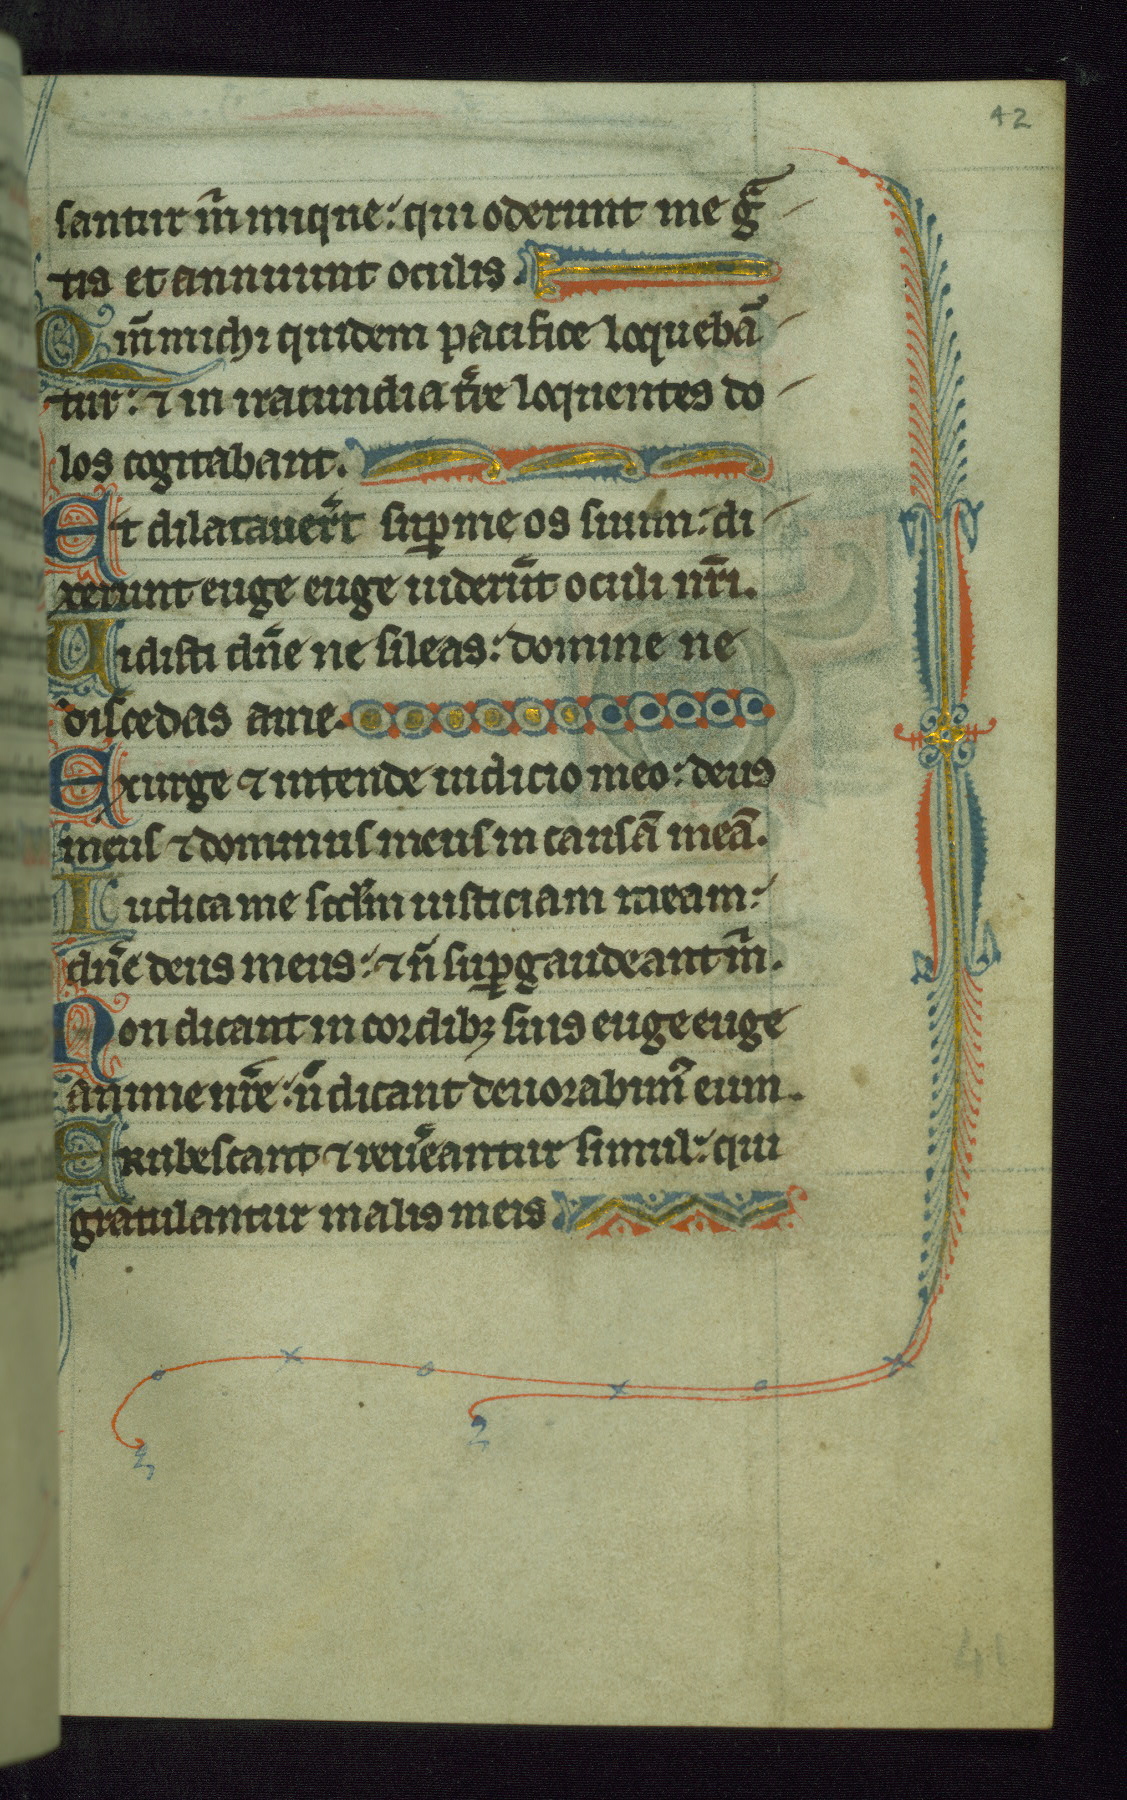 42
santur m̃ inique: qui oderunt me g̃
tis et annuunt oculis.
Qm̃ michi quidem pacifice loquebã
tur: ⁊ in iracundia tr̃e loquentes do
los cogitabant.
Et dilatauer̃t sup̱ me os suum: di
xerunt euge euge uiderũt oculi nr̃i.
Uidisti dñe ne sileas: domine ne
discedas a me.
Exurge ⁊ intende iudicio meo: deus
meus ⁊ dominus meus in causã meã.
Iudica me scdm̃ iusticiam meam:
dñe deus meus: ⁊ ñ sup̱gaudeant m̃.
Non dicant in cordibꝫ suis euge euge
anime nr̃e: ñ dicant deuorabim᷒ eum.
Erubescant ⁊ reuẽantur simul: qui
gratulantur malis meis
41